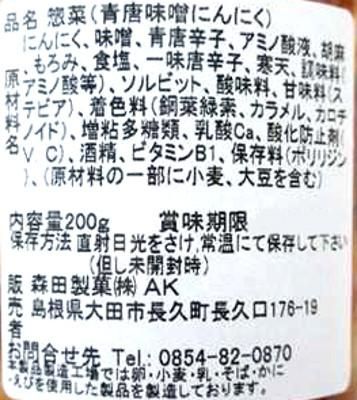 品名 惣菜(青唐味噌にんにく)
原材料名 にんにく、味噌、青唐辛子、アミノ酸液、胡麻
もろみ、食塩、一味唐辛子、寒天、調味料(
アミノ酸等)、ソルビット、酸味料、甘味料(ス
テビア)、着色料(銅葉緑素、カラメル、カロチ
ノイド)、増粘多糖類、乳酸Ca、酸化防止剤(
V C)、酒精、ビタミンB1、保存料(ポリリジン
)、(原材料の一部に小麦、大豆を含む)
内容量200g 賞味期限
保存方法 直射日光をさけ,常温にて保存して下さい
(但し未開封時)
販売者 森田製菓㈱ AK
島根県大田市長久町長久口176-19
お問合せ先 Tel: 0854-82-0870
本製品製造工場では卵・小麦・乳・そば・かに
・えびを使用した製品を製造しております。